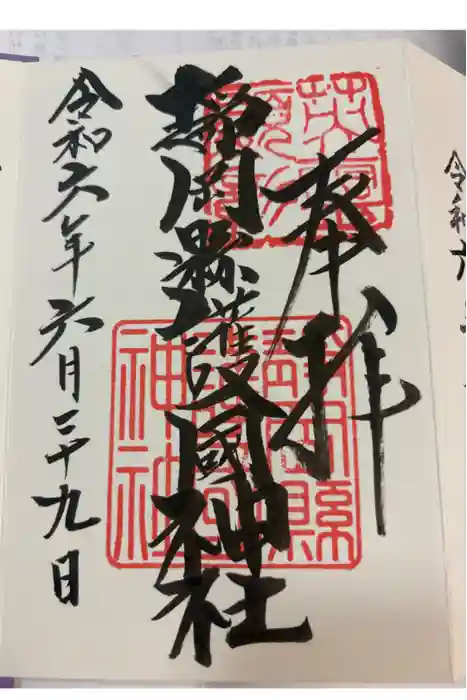 奉拝
靜岡縣護國神社
令和六年六月二十九日
英靈
靜岡縣
神社
令和六